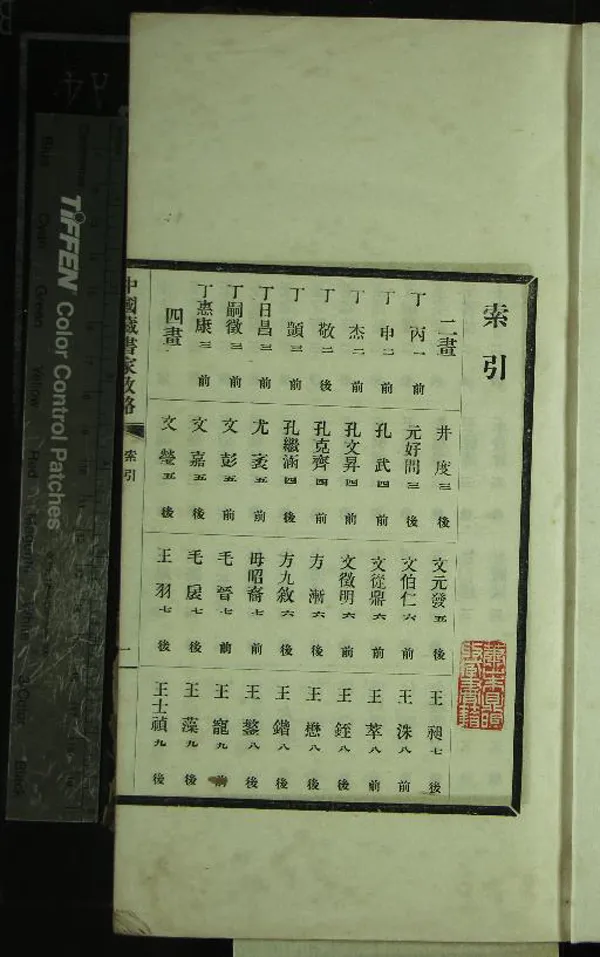 索引
二畫
丁丙一前
丁申二前
丁杰二前
丁敬二後
丁顗三前
丁日昌三前
丁嗣徵三前
丁惠康三前
四畫
井度三後
元好問三後
孔武四前
孔文昇四前
孔克齊四前
孔繼涵四後
尤袤五前
文彭五前
文嘉五後
文瑩五後
文元發五後
文伯仁六前
文從鼎六前
文徵明六前
方漸六後
方九敘六後
毋昭裔七前
毛晉七前
毛扆七後
王羽七後
王昶七後
王洙八前
王萃八前
王銍八後
王懋八後
王鍇八後
王鏊八後
王寵九前
王藻九後
王士禎九後
中國藏書家攷略
索引
一
TIFFEN Color Control Patches
Blue
Cyan
Green
Yellow
Red